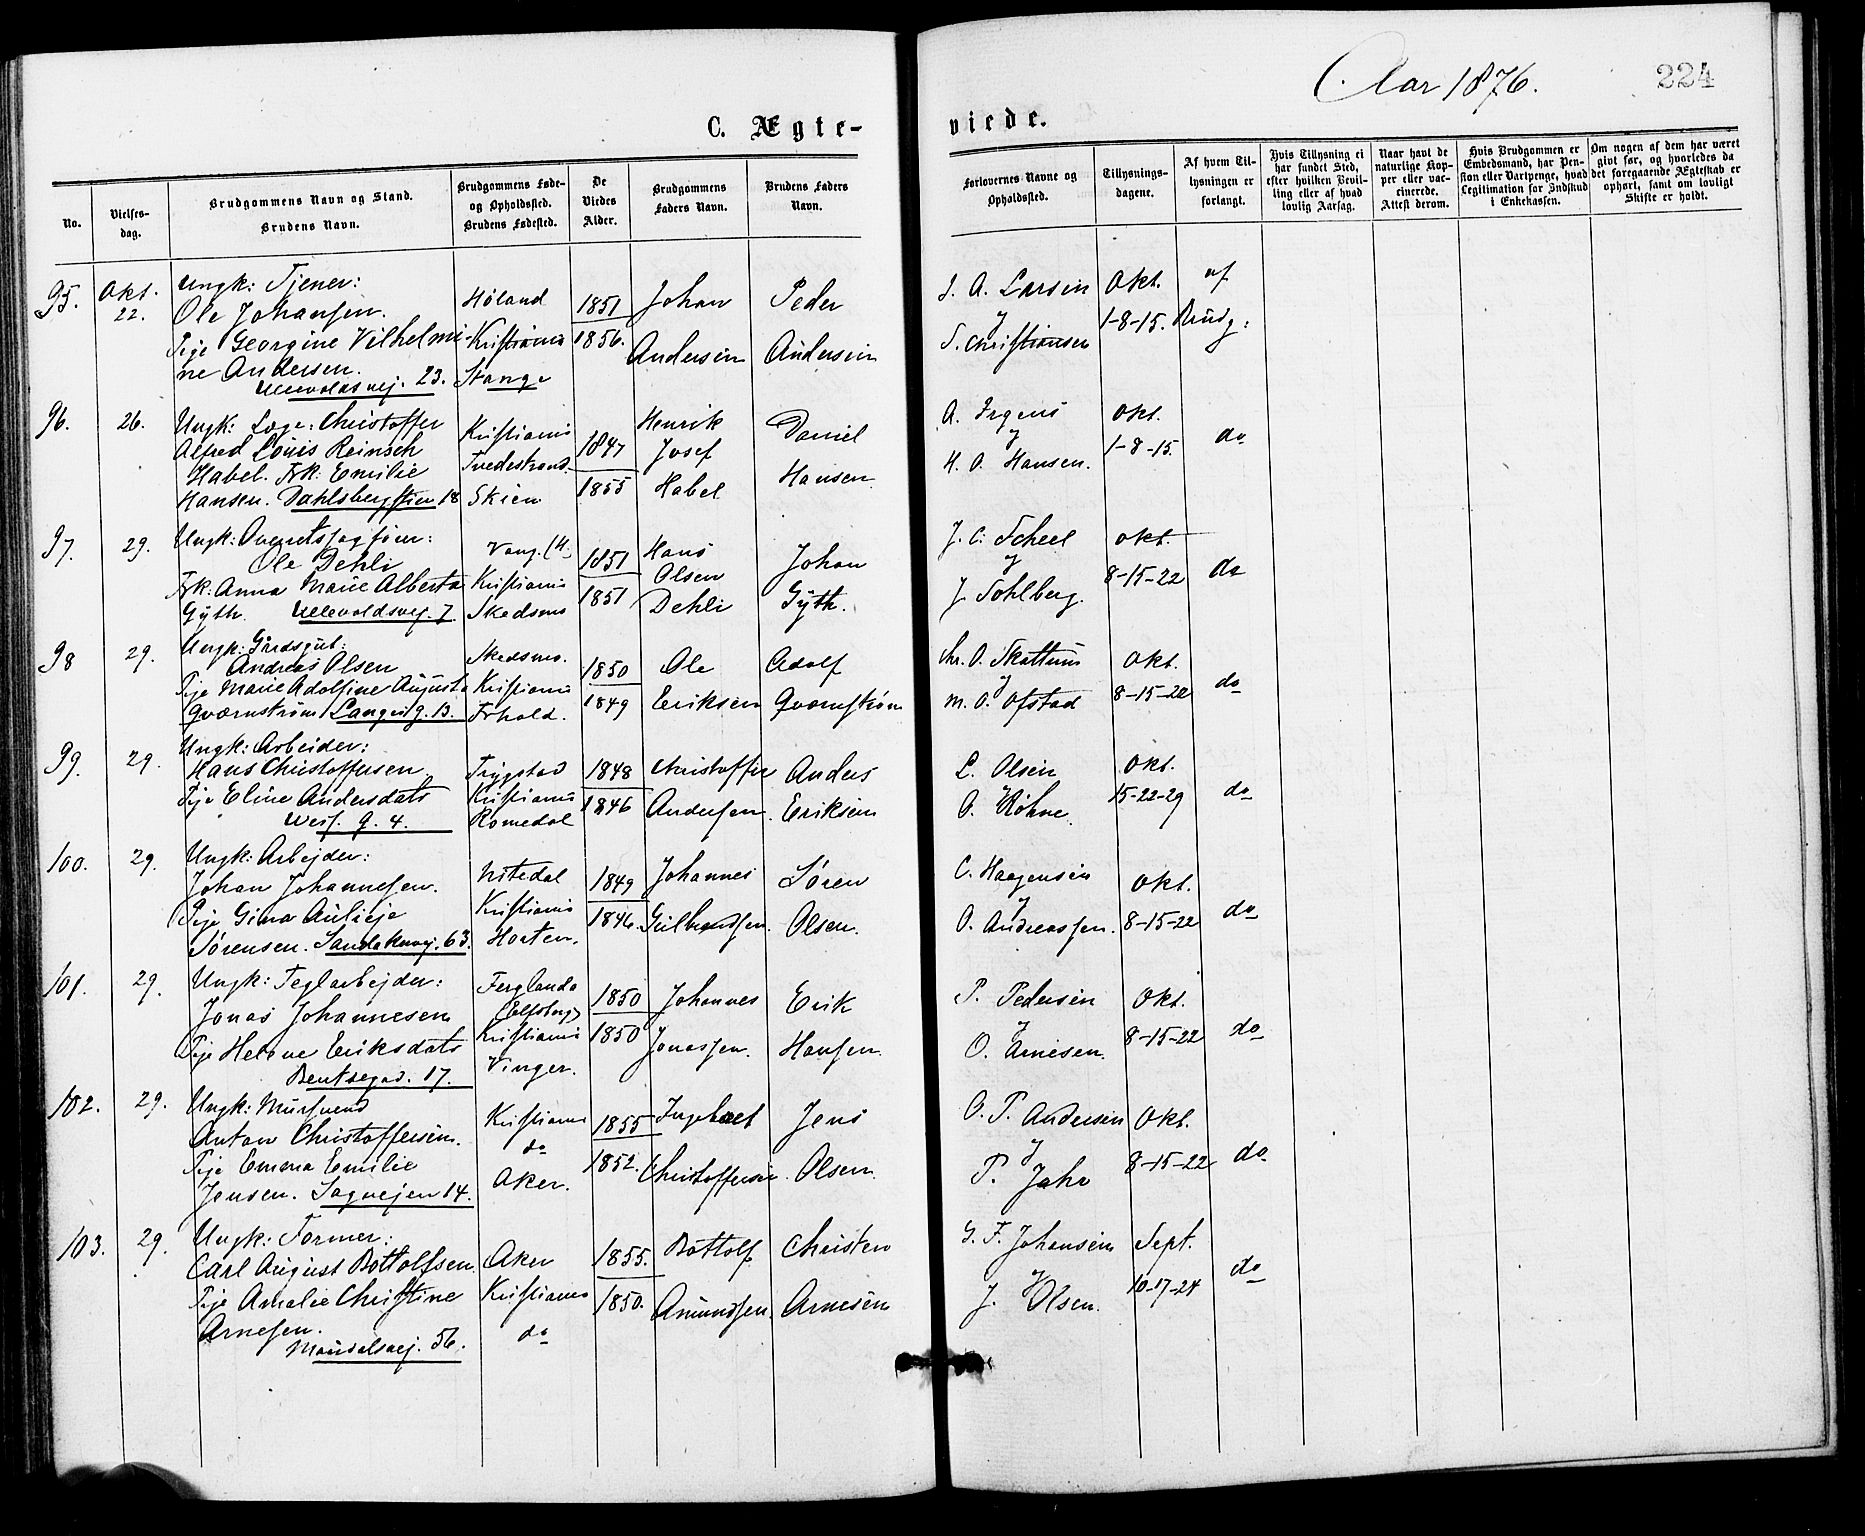 Aar 1876.
224
C. Ægte-
viede.
No.
Vielses-
dag.
Brudgommens Navn og Stand.
Brudens Navn.
Brudgommens Føde-
og Opholdssted.
Brudens Fødested.
De
Viedes
Alder.
Brudgommens
Faders Navn.
Brudens Faders
Navn.
Forlovernes Navne og
Opholdssted.
Tillysnings-
dagene.
Af hvem Til-
lysningen er
forlangt.
Hvis Tillysning ei
har fundet Sted,
efter hvilken Bevil-
ling eller af hvad
lovlig Aarsag.
Naar havt de
naturlige Kop-
per eller vac-
cinerede.
Attest derom.
Hvis Brudgommen er
Embedsmand, har Pen-
sion eller Vartpenge, hvad
Legitimation for Indskud
i Enkekassen.
Om nogen af dem har været
gift før, og hvorledes da
det foregaaende Ægteskab er
ophørt, samt om lovligt
Skifte er holdt.
95. Okt. 22.
Ungk: Tjener:
Ole Johansen.
Pige Georgine Vilhelmi-
ne Andersen.
Ullevoldsvej. 23.
Høland
Kristiania
Stange
1851
1856.
Johan
Andersen
Peder
Andersen
J. A. Larsen
J. Christiansen
Okt.
1-8-15.
af
Brudg:
96. 26.
Ungk: Læge: Christoffer
Alfred Louis Reinsch
Habel. Frk: Emilie
Hansen. Dahlsbergstien 18
Kristiania
Tvedestrand
Skien
1847
1855
Henrik
Josef
Habel
Daniel
Hansen
A. Irgens
H. O. Hansen.
Okt.
1-8-15.
do
97. 29.
Ungk: Overretssagfører:
Ole Dehli
Frk: Anna Marie Alberta
Gyth. Ullevoldsvej. 7.
Vang. (H.)
Kristiania
Skedsmo
1851
1851
Hans
Olsen
Dehli
Johan
Gyth.
J. C. Scheel
J. Sohlberg.
Okt.
8-15-22
do
98 29.
Ungk: Gårdsgut:
Andreas Olsen
Pige Marie Adolfine Augusta
Qværnstrøm Langesg. 13.
Skedsmo.
Kristiania
Frhald.
1850
1849
Ole
Eriksen
Adolf
Qværnstrøm
Chr. O. Skattum
M. O. Ofstad
Okt.
8-15-22
do
99. 29.
Ungk: Arbeider:
Hans Christoffersen
Pige Eline Andersdats
Wesf. g. 4.
Trygstad
Kristiania
Romedal
1848
1846
Christoffer
Andersen
Anders
Eriksen
L. Olsen
O. Røhne.
Okt.
15-22-29
do
100. 29.
Ungk: Arbejder:
Johan Johannesen.
Pige Gina Aulieje
Sørensen. Sandakervej. 63.
Nitedal
Kristiania
Horten.
1849
1846.
Johannes
Gulbrandsen.
Søren
Olsen.
C. Haagensen
O. Andreassen.
Okt.
8-15-22
do
101. 29.
Ungk: Teglarbejder:
Jonas Johannesen
Pige Helene Eriksdats
Bentsegad. 17.
Ferglanda
(Elfsborg)
Kristiania
Vinger.
1850
1850
Johannes
Jonassen.
Erik
Hansen.
P. Pedersen
O. Arnesen.
Okt.
8-15-22
do
102. 29.
Ungk: Mursvend
Anton Christoffersen.
Pige Emma Emilie
Jensen. Sagvejen 14.
Kristiania
do
Aker.
1855
1852.
Ingebret
Christoffersen.
Jens
Olsen.
O. P. Andersen
P. Jahr
Okt.
8-15-22
do
103. 29.
Ungk: Former:
Carl August Bottolfsen.
Pige Amalie Christine
Arnesen.
Maridalsvej. 56.
Aker
Kristiania
do
1855.
1850.
Bottolf
Amundsen.
Christen
Arnesen
G. F. Johansen
J. Olsen.
Sept.
10-17-24
do